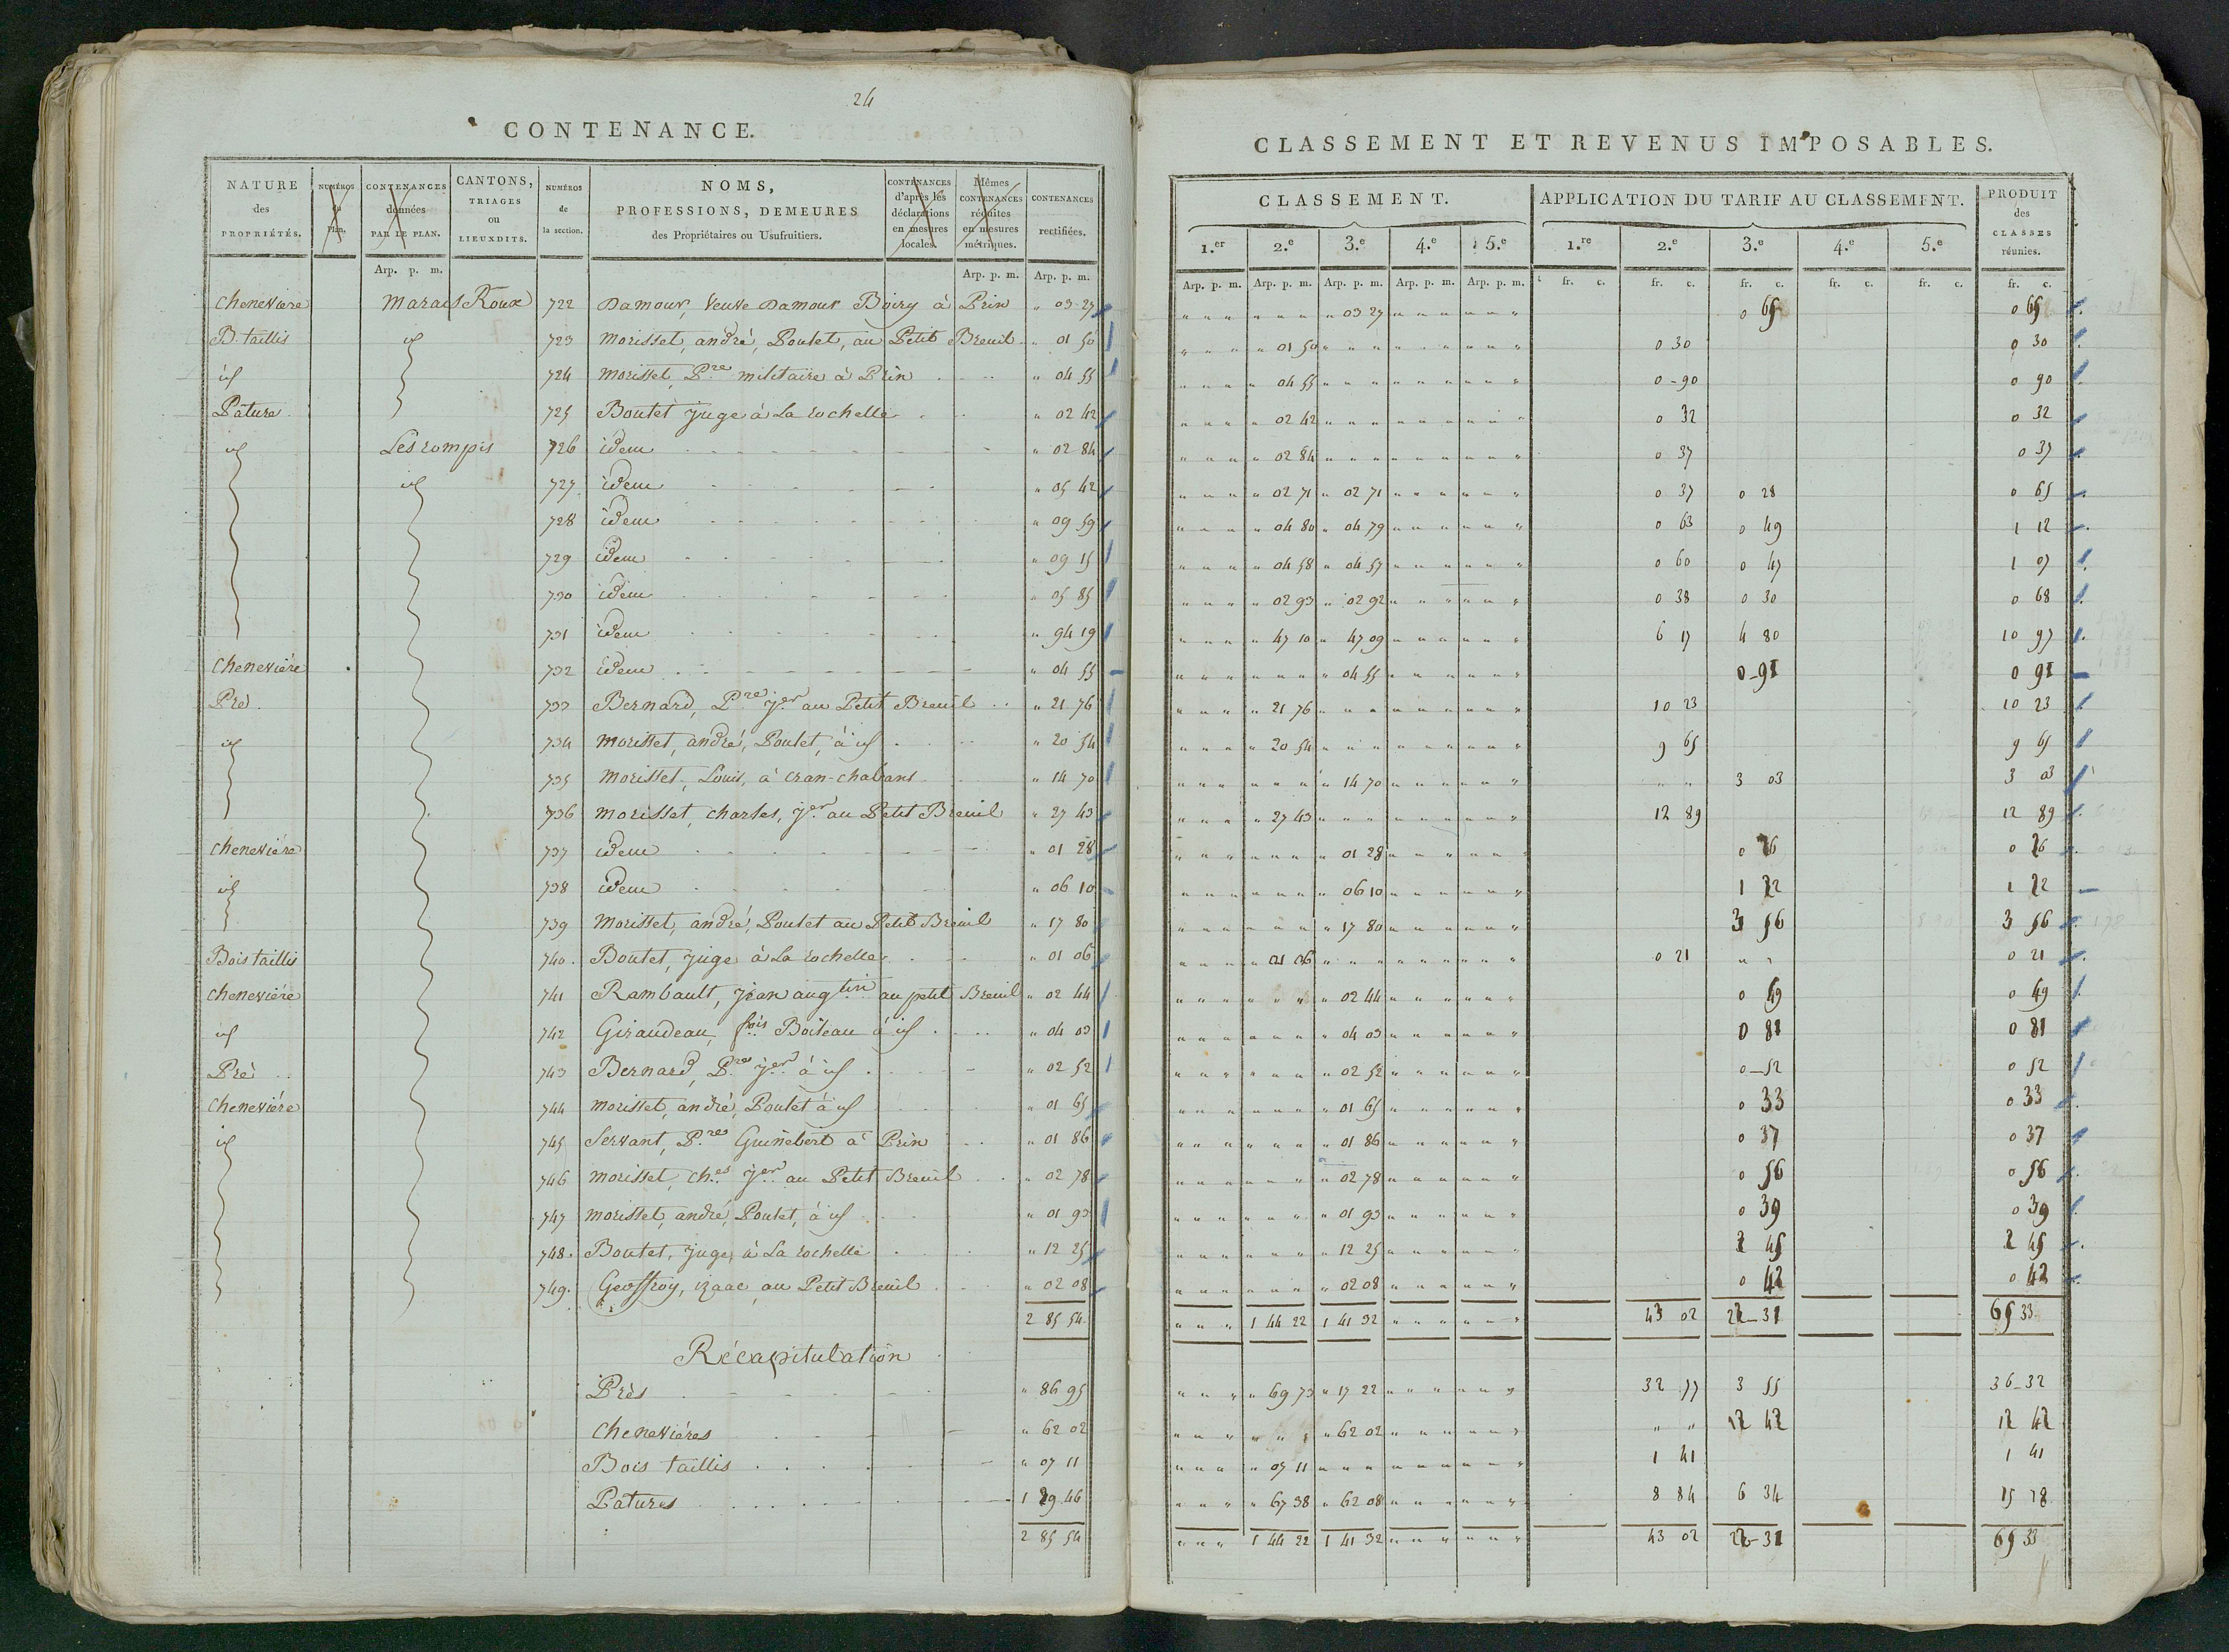 24
CONTENANCE.
NATURE des PROPRIÉTÉS. NUMÉROS du Plan. CONTENANCES données PAR LE PLAN. CANTONS, TRIAGES ou LIEUXDITS. NUMÉROS de la section. NOMS, PROFESSIONS, DEMEURES des Propriétaires ou Usufruitiers. CONTENANCES d'après les déclarations en mesures locales. Mêmes CONTENANCES réduites en mesures métriques. CONTENANCES rectifiées.
Arp. p. m. Arp. p. m. Arp. p. m.
Chenevière Marais Roux 722 Damour, Veuve Damour Boiry à Prin " 03 27
B. taillis id 723 Morisset, andré, Poulet, au Petit Breuil " 01 50
id 724 Morisset, Pre militaire à Prin " 04 55
Pature 725 Boutet juge à La rochelle " 02 42
id Les rompis 726 idem " 02 84
id 727 idem " 05 42
728 idem " 09 59
729 idem " 09 15
730 idem " 05 85
731 idem " 94 19
Chenevière 732 idem " 04 55
Pré. 733 Bernard, Pre jer au Petit Breuil " 21 76
id 734 Morisset, andré, Poulet, à id " 20 54
735 Morisset, Louis, à Cran-chabans " 14 70
736 Morisset, Charles, jer au Petit Breuil " 27 43
Chenevière 737 idem " 01 28
id 738 idem " 06 10
739 Morisset, andré, Poulet au Petit Breuil " 17 80
Bois taillis 740. Boutet, juge à La rochelle " 01 06
Chenevière 741 Rambault, jean augtin au petit Breuil " 02 44
id 742 Giraudeau, fois Boiteau à id " 04 03
Pré 743 Bernard, Pre jer à id " 02 52
Chenevière 744 Morisset, andré, Poulet à id " 01 65
id 745 Servant, Pre Guinebert à Prin " 01 86
746 Morisset, Ches jer au Petit Breuil " 02 78
747 Morisset, andré, Poulet, à id " 01 93
748. Boutet, juge, à La rochelle " 12 25
749. Geoffroy, izaac au Petit Breuil " 02 08
2 85 54
Récapitulation
Près " 86 95
Chenevières " 62 02
Bois taillis " 07 11
Patures 1 29 46
2 85 54
CLASSEMENT ET REVENUS IMPOSABLES.
CLASSEMENT. APPLICATION DU TARIF AU CLASSEMENT. PRODUIT des CLASSES réunies.
1.er 2.e 3.e 4.e 5.e 1.re 2.e 3.e 4.e 5.e
Arp. p. m. Arp. p. m. Arp. p. m. Arp. p. m. Arp. p. m. fr. c. fr. c. fr. c. fr. c. fr. c. fr. c.
" 03 27 0 65 0 65
" 01 50 0 30 0 30
" 04 55 0-90 0 90
" 02 42 0 32 0 32
" 02 84 0 37 0 37
" 02 71 " 02 71 0 37 0 28 0 65
" 04 80 " 04 79 0 63 0 49 1 12
" 04 58 " 04 57 0 60 0 47 1 07
" 02 93 " 02 92 0 38 0 30 0 68
" 47 10 " 47 09 6 17 4 80 10 97
" 04 55 0-91 0 91
" 21 76 10 23 10 23
" 20 54 9 65 9 65
" 14 70 " " 3 03 3 03
" 27 43 12 89 12 89
" 01 28 0 26 0 26
" 06 10 1 22 1 22
" 17 80 3 56 3 56
" 01 06 0 21 " " 0 21
" 02 44 0 49 0 49
" 04 03 0 81 0 81
" 02 52 0-52 0 52
" 01 65 0 33 0 33
" 01 86 0 37 0 37
" 02 78 0 56 0 56
" 01 93 0 39 0 39
" 12 25 2 45 2 45
" 02 08 0 42 0 42
" " " 1 44 22 1 41 32 43 02 22-31 65 33
" 69 73 " 17 22 32 77 3 55 36-32
" 62 02 " " 12 42 12 42
" 07 11 1 41 1 41
" 67 38 " 62 08 8 84 6 34 15 18
" " " 1 44 22 1 41 32 43 02 22-31 65 33